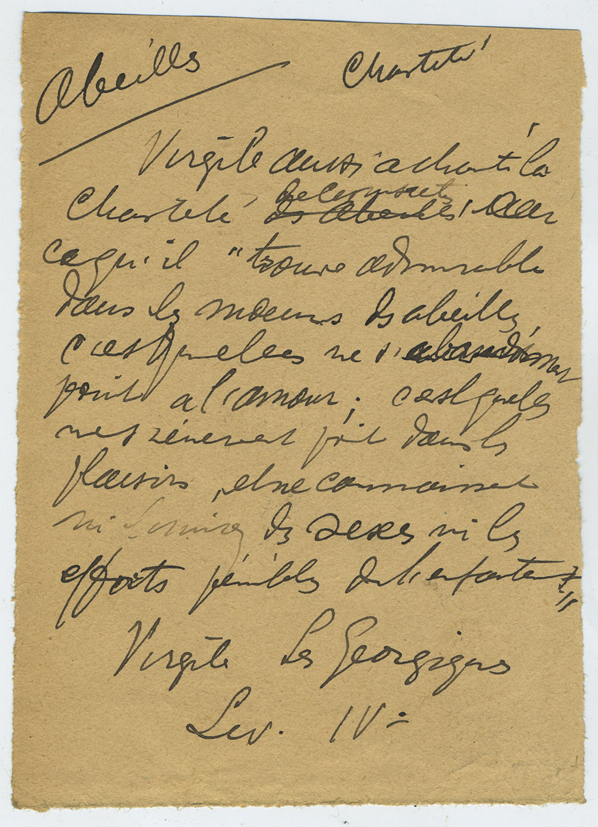 Abeilles
Chasteté
Virgile aussi a chanté la
chasteté des abeilles. Car
ce qu'il "trouve admirable
dans les mœurs des abeilles,
c'est qu'elles ne s'abandonnent
point à l'amour ; c'est qu'elles
ne s'énervent pt dans les
plaisirs, et ne connaissent
ni l'union des sexes ni les
efforts pénibles de l'enfantemt"
Virgile Les Georgiques
Liv. IV =